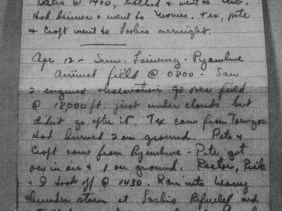 @ 1400,
Had dinner & went to movies. Tex, Pete
& Croft went to Loshio overnight.
Apr 12 - Sun.
Arrived field @ 0800. Saw
2 engined observation go over field
@ 18,000 ft. just under clouds but
didnt go after it. Tex came from
Had burned 2 on ground. Pete &
Croft came from Pyawbwe - Pete got
one in air & 1 on ground. Rector,
& I took off @ 1430. Ran into heavy
thunder storm at Loshio. Refueled and